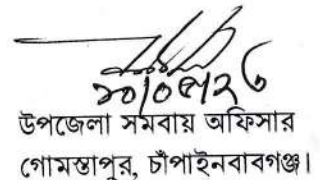 ১০/০৫/২৬
উপজেলা সমবায় অফিসার
গোমস্তাপুর, চাঁপাইনবাবগঞ্জ।